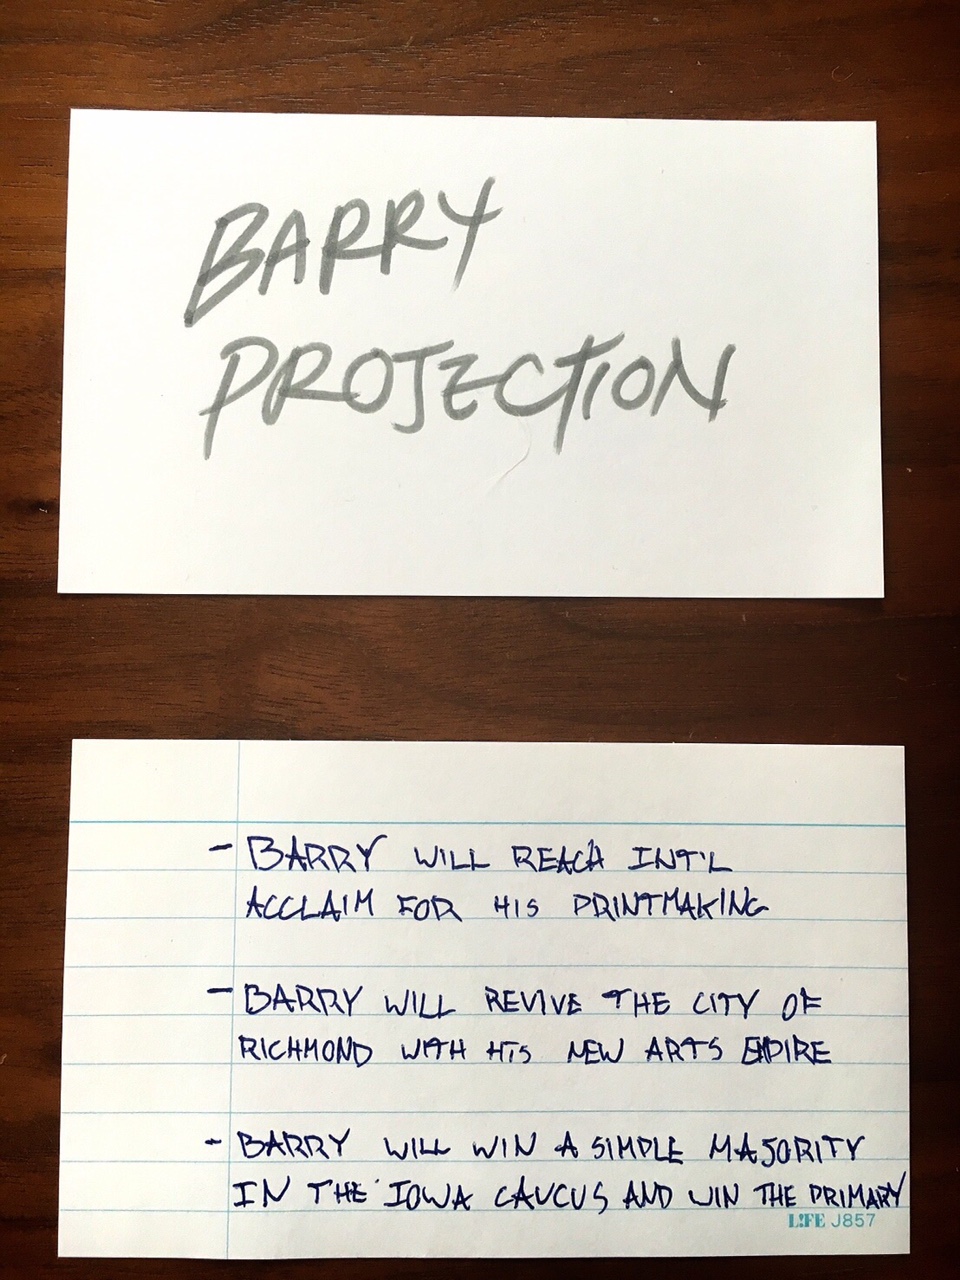 BARRY
PROJECTION
- BARRY WILL REACH INT'L
ACCLAIM FOR HIS PRINTMAKING
- BARRY WILL REVIVE THE CITY OF
RICHMOND WITH HIS NEW ARTS EMPIRE
- BARRY WILL WIN A SIMPLE MAJORITY
IN THE IOWA CAUCUS AND WIN THE PRIMARY
L!FE J857